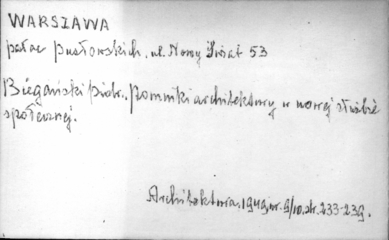 WARSZAWA
pałac Pusłowskich, ul. Nowy Świat 53
Biegański Piotr. Pomniki architektury w nowej służbie
społecznej.
Architektura. 1949, nr. 9/10, str. 233-239.